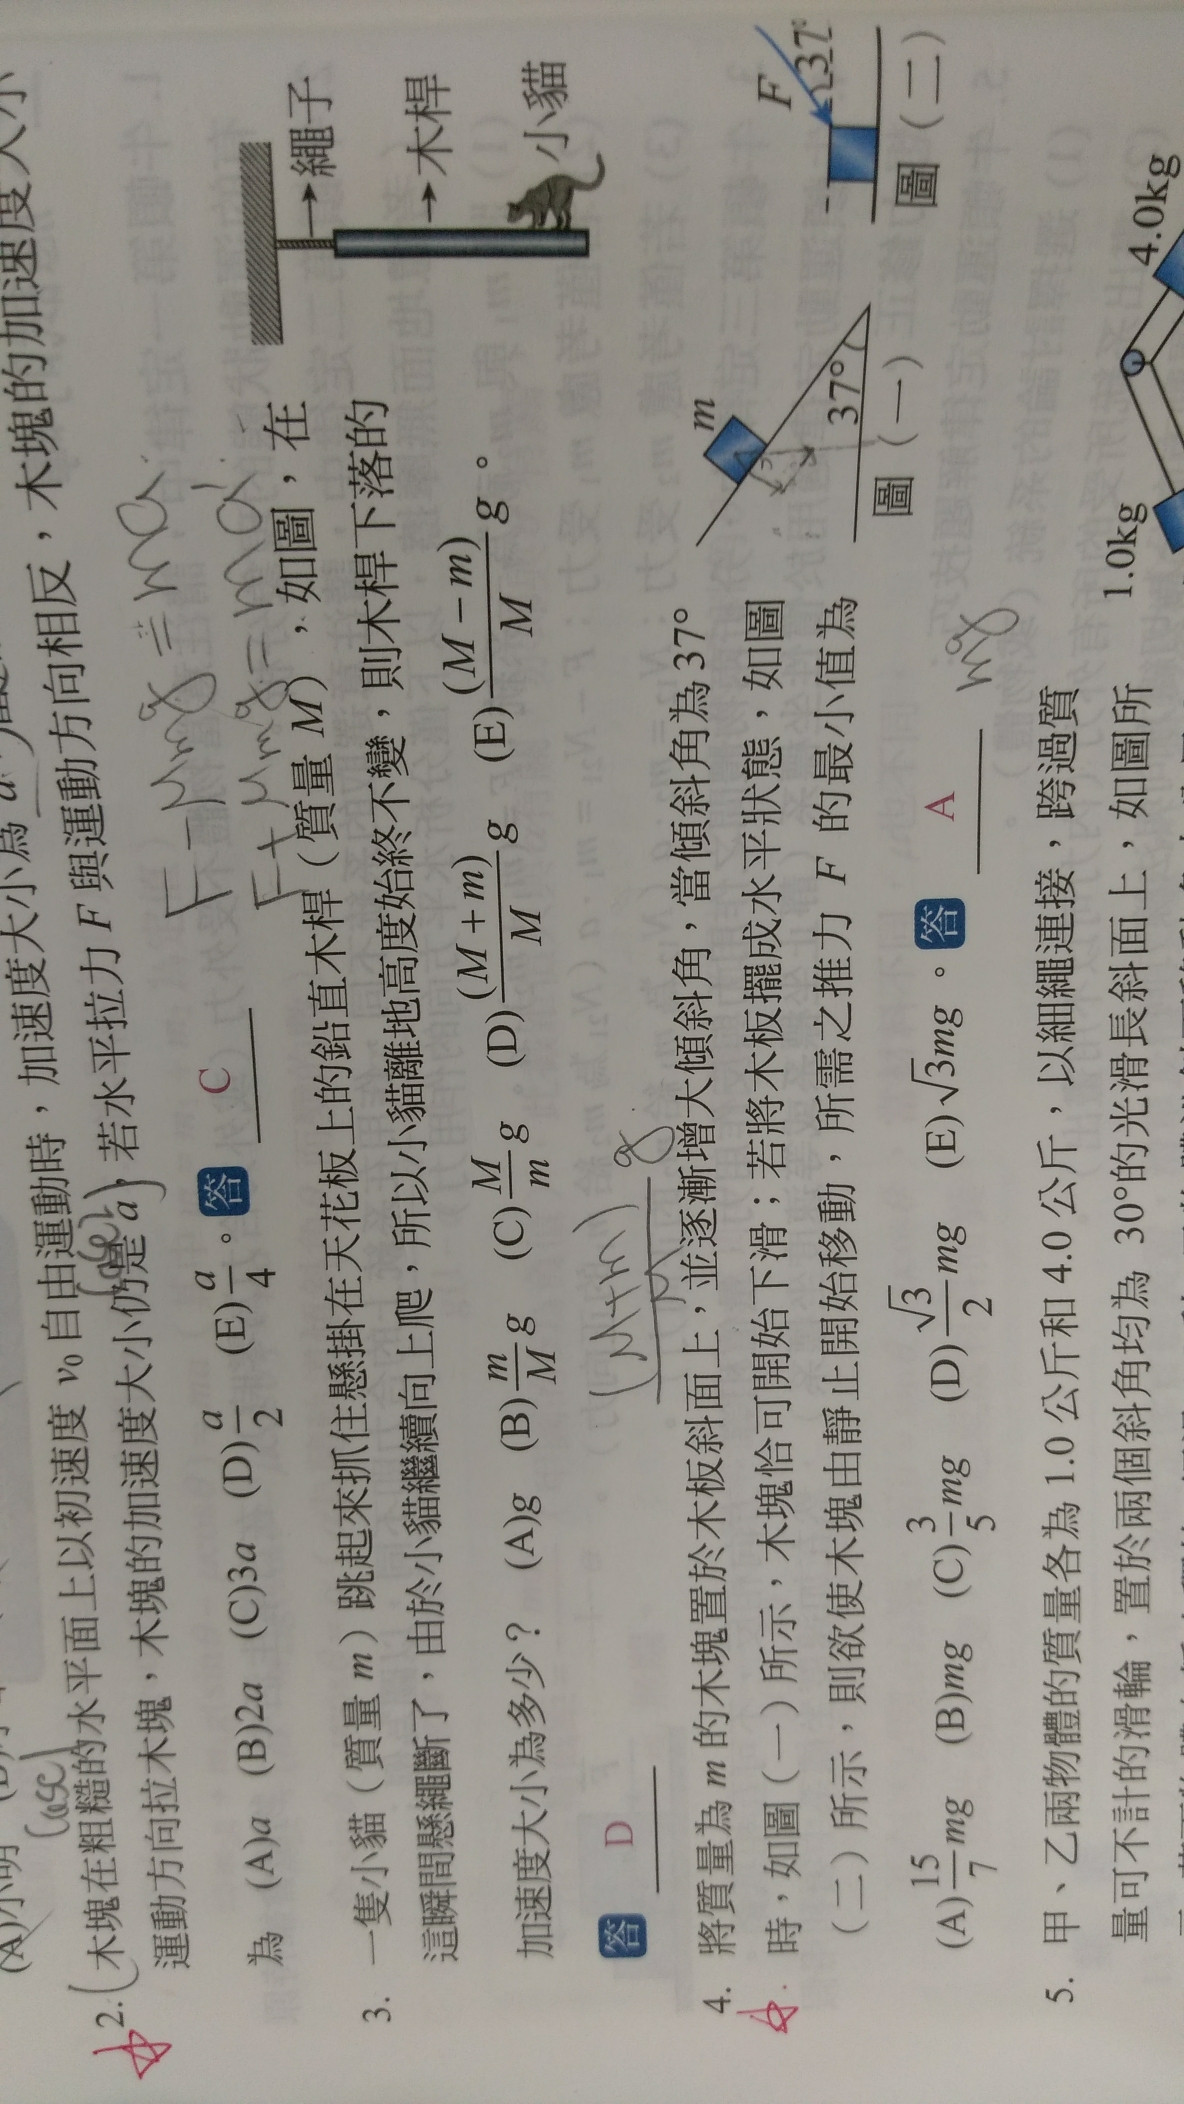 加速度大小為 a
木塊的加速度大小
(A)小明
2. 木塊在粗糙的水平面上以初速度 v₀ 自由運動時，加速度大小為 a，若水平拉力 F 與運動方向相反，木塊的加速度大小
運動方向拉木塊，木塊的加速度大小仍是 a，若水平拉力 F 與運動方向相反，木塊的加速度大小
為 (A)a (B)2a (C)3a (D)a/2 (E)a/4。答 C
(case)
(case)
F-μmg=ma
F+μmg=ma'
3. 一隻小貓（質量 m）跳起來抓住懸掛在天花板上的鉛直木桿（質量 M），如圖，在
這瞬間懸繩斷了，由於小貓繼續向上爬，所以小貓離地高度始終不變，則木桿下落的
加速度大小為多少？ (A)g (B)m/M g (C)M/m g (D)(M+m)/M g (E)(M-m)/M g。
答 D
(M+m)g
繩子
木桿
小貓
4. 將質量為 m 的木塊置於木板斜面上，並逐漸增大傾斜角，當傾斜角為 37°
時，如圖（一）所示，木塊恰可開始下滑；若將木板擺成水平狀態，如圖
（二）所示，則欲使木塊由靜止開始移動，所需之推力 F 的最小值為
(A)15/7 mg (B)mg (C)3/5 mg (D)√3/2 mg (E)√3mg。答 A
mg
m
37°
圖（一）
F
37°
圖（二）
5. 甲、乙兩物體的質量各為 1.0 公斤和 4.0 公斤，以細繩連接，跨過質
量可不計的滑輪，置於兩個斜角均為 30°的光滑長斜面上，如圖所
1.0kg
4.0kg